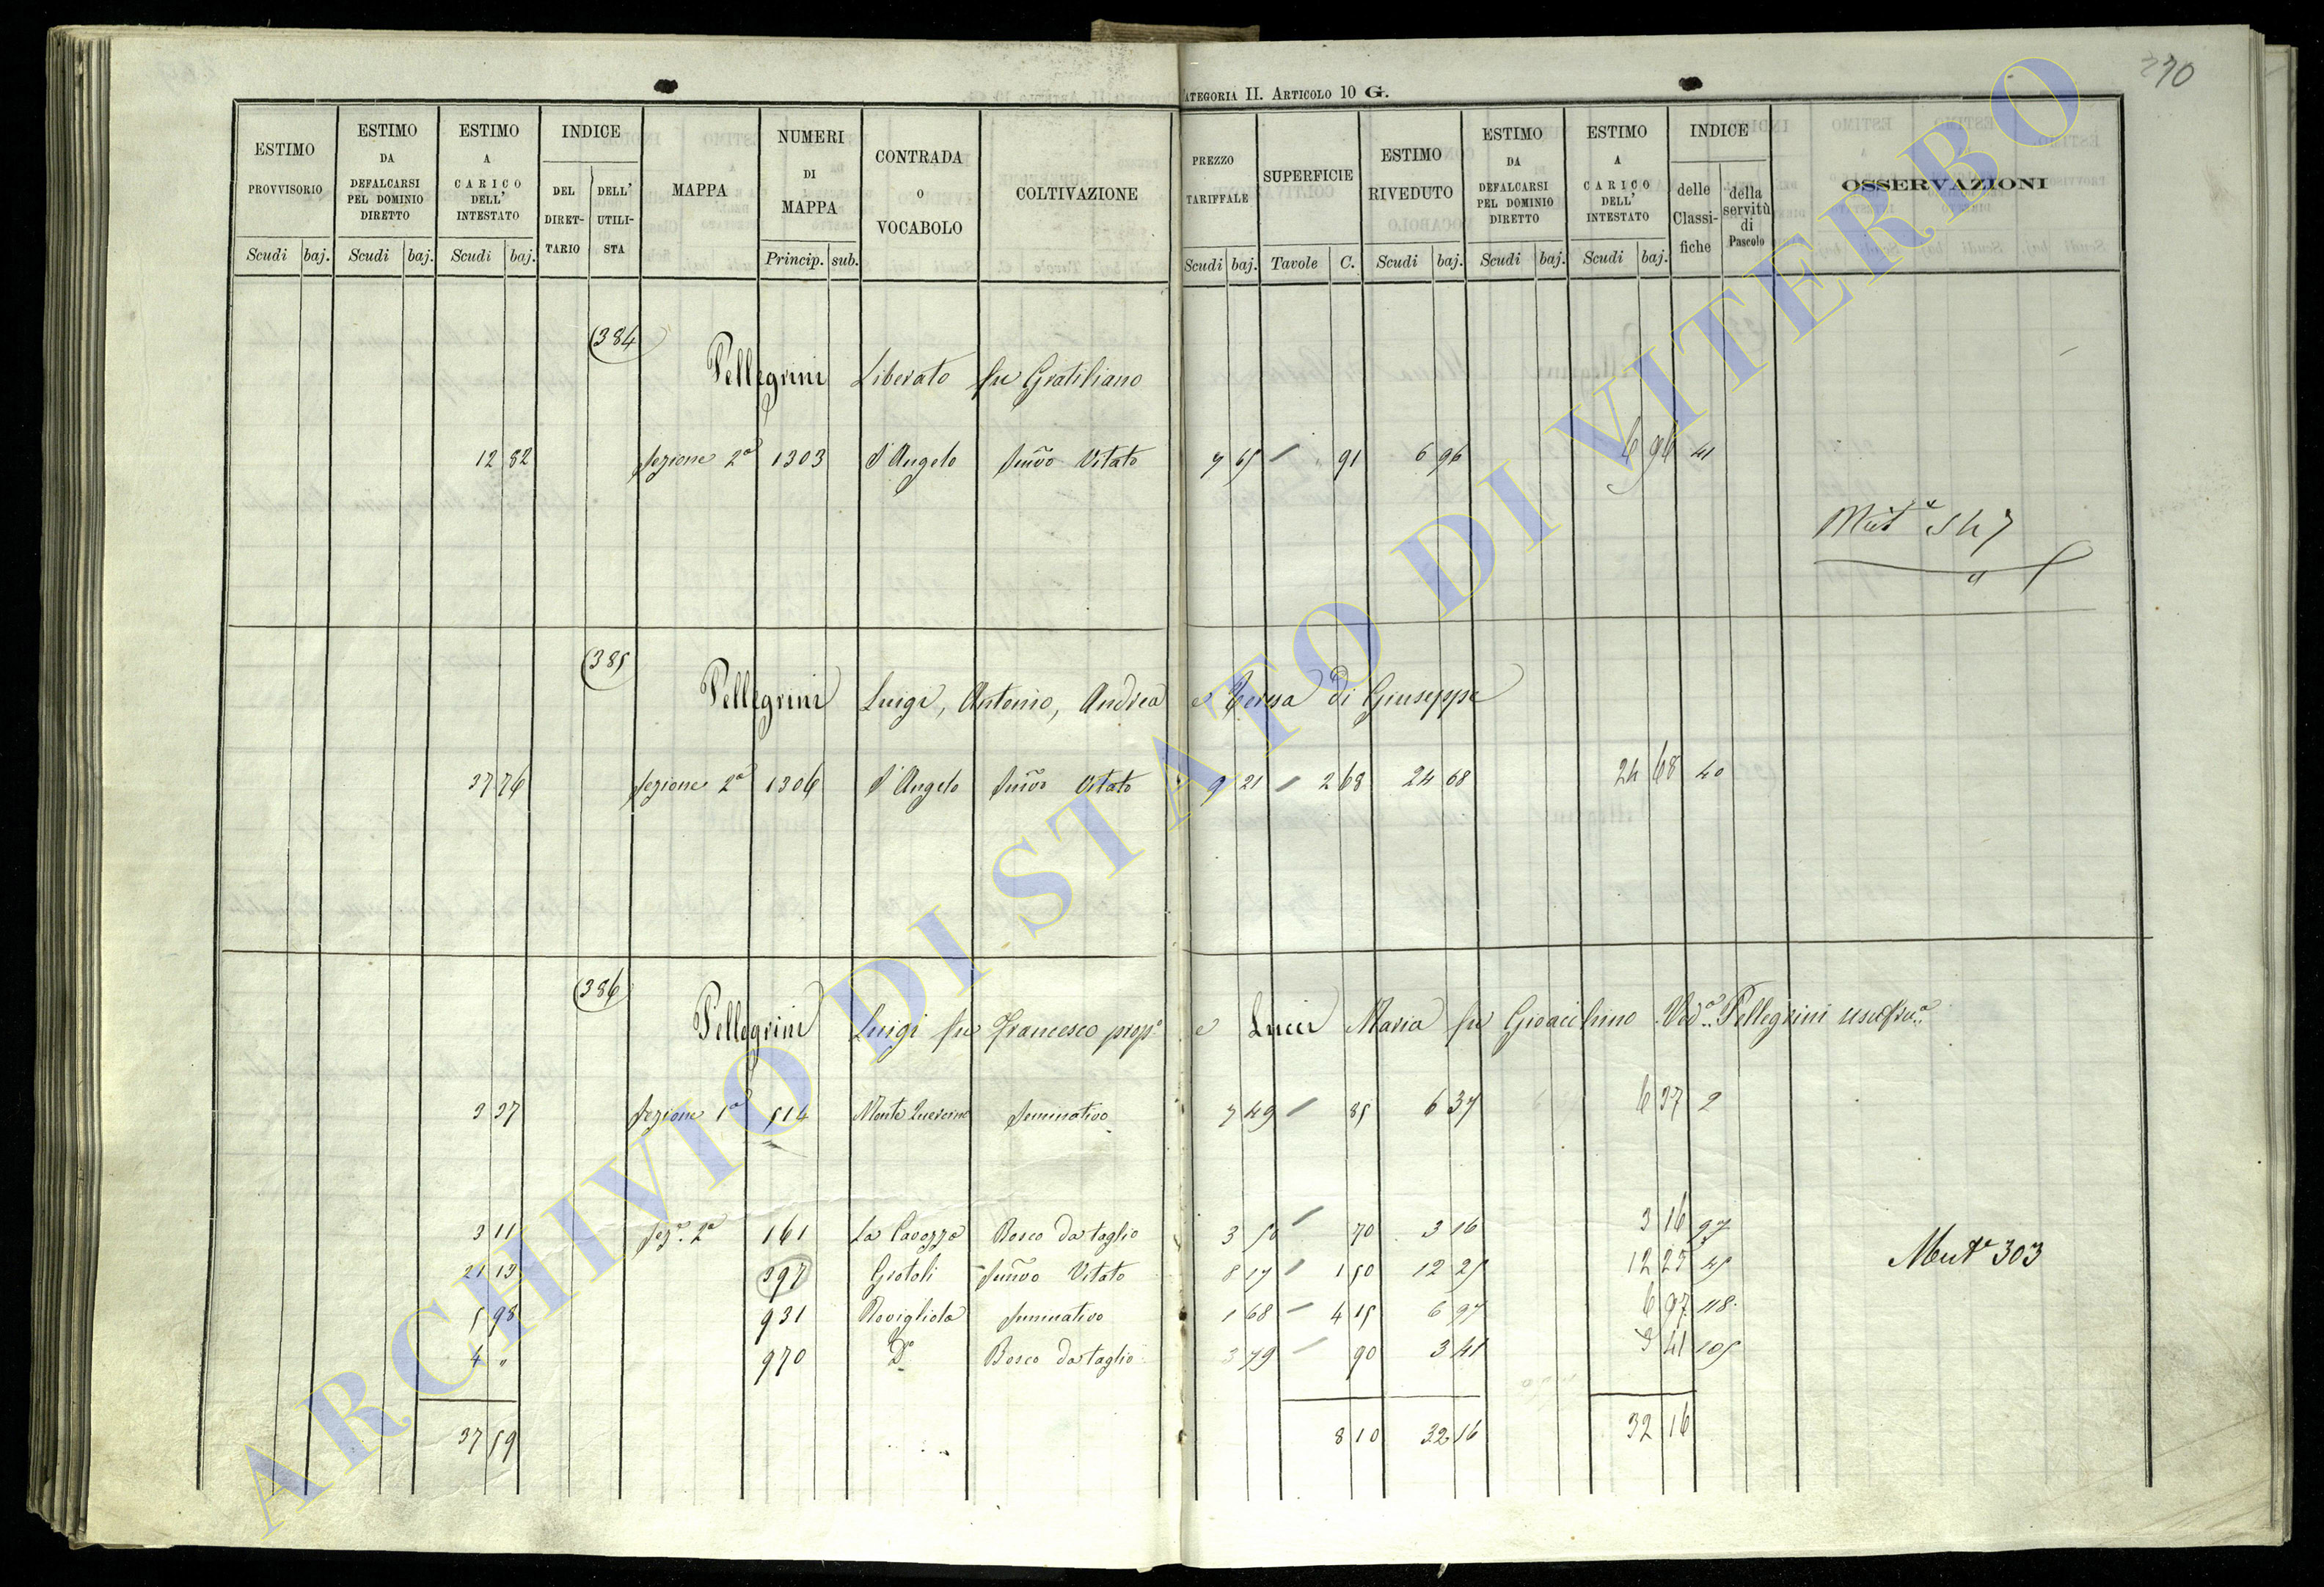 370
CATEGORIA II. ARTICOLO 10 G.
ESTIMO PROVVISORIO Scudi baj.
ESTIMO DA DEFALCARSI PEL DOMINIO DIRETTO Scudi baj.
ESTIMO A CARICO DELL' INTESTATO Scudi baj.
INDICE DEL DIRET-TARIO DELL' UTILI-STA
MAPPA
NUMERI DI MAPPA Princip. sub.
CONTRADA O VOCABOLO
COLTIVAZIONE
PREZZO TARIFFALE Scudi baj.
SUPERFICIE Tavole C.
ESTIMO RIVEDUTO Scudi baj.
ESTIMO DA DEFALCARSI PEL DOMINIO DIRETTO Scudi baj.
ESTIMO A CARICO DELL' INTESTATO Scudi baj.
INDICE delle Classi-fiche della servitù di Pascolo
OSSERVAZIONI
384
Pellegrini Liberato fu Gratiliano
12 82 Sezione 2a 1303 S. Angelo Semvo Vitato 7 65 91 6 96 6 96 41
Muta 547
385
Pellegrini Luigi, Antonio, Andrea e Teresa di Giuseppe
37 76 Sezione 2a 1306 S. Angelo Semvo Vitato 9 21 2 68 24 68 24 68 40
386
Pellegrini Luigi fu Francesco propo e Lucci Maria fu Gioacchino Veda Pellegrini usufrua
3 37 Sezione 1a 514 Monte Quercine Seminativo 7 49 85 6 37 6 37 2
3 11 Seze 2a 161 La Cavozza Bosco da taglio 3 50 70 3 16 3 16 97
21 13 397 Grotoli Semvo Vitato 8 17 1 50 12 25 12 25 45
5 98 931 Rovigliola Seminativo 1 68 4 15 6 97 6 97 118
4 " 970 Do Bosco da taglio 3 79 90 3 41 3 41 105
Muta 303
37 59 8 10 32 16 32 16
ARCHIVIO DI STATO DI VITERBO